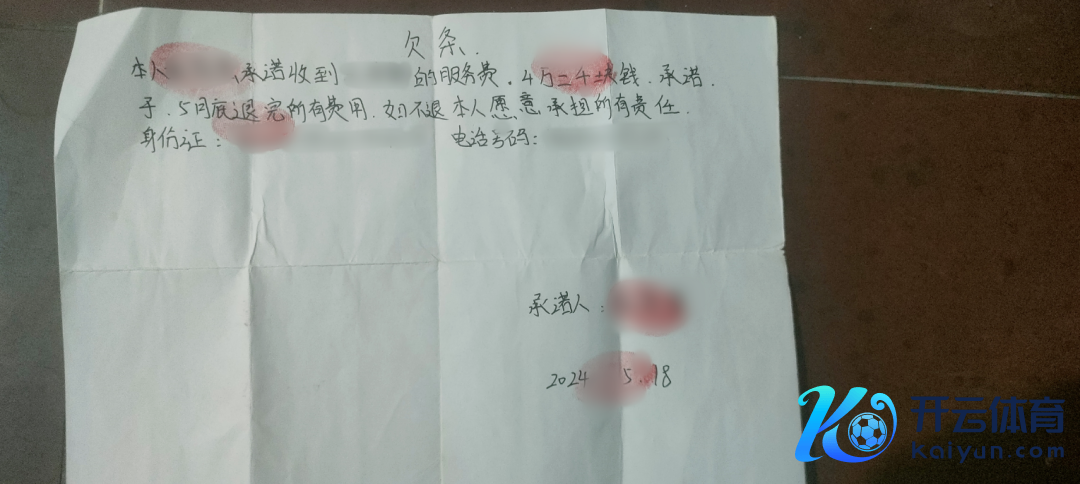 欠条.
本人 、承诺收到 的服务费.4万二千块钱.承诺
于.5月底退完所有费用.如不退本人愿意承担所有责任.
身份证: 电话号码:
承诺人:
2024 5.18
开云体育
Kaiyun.com